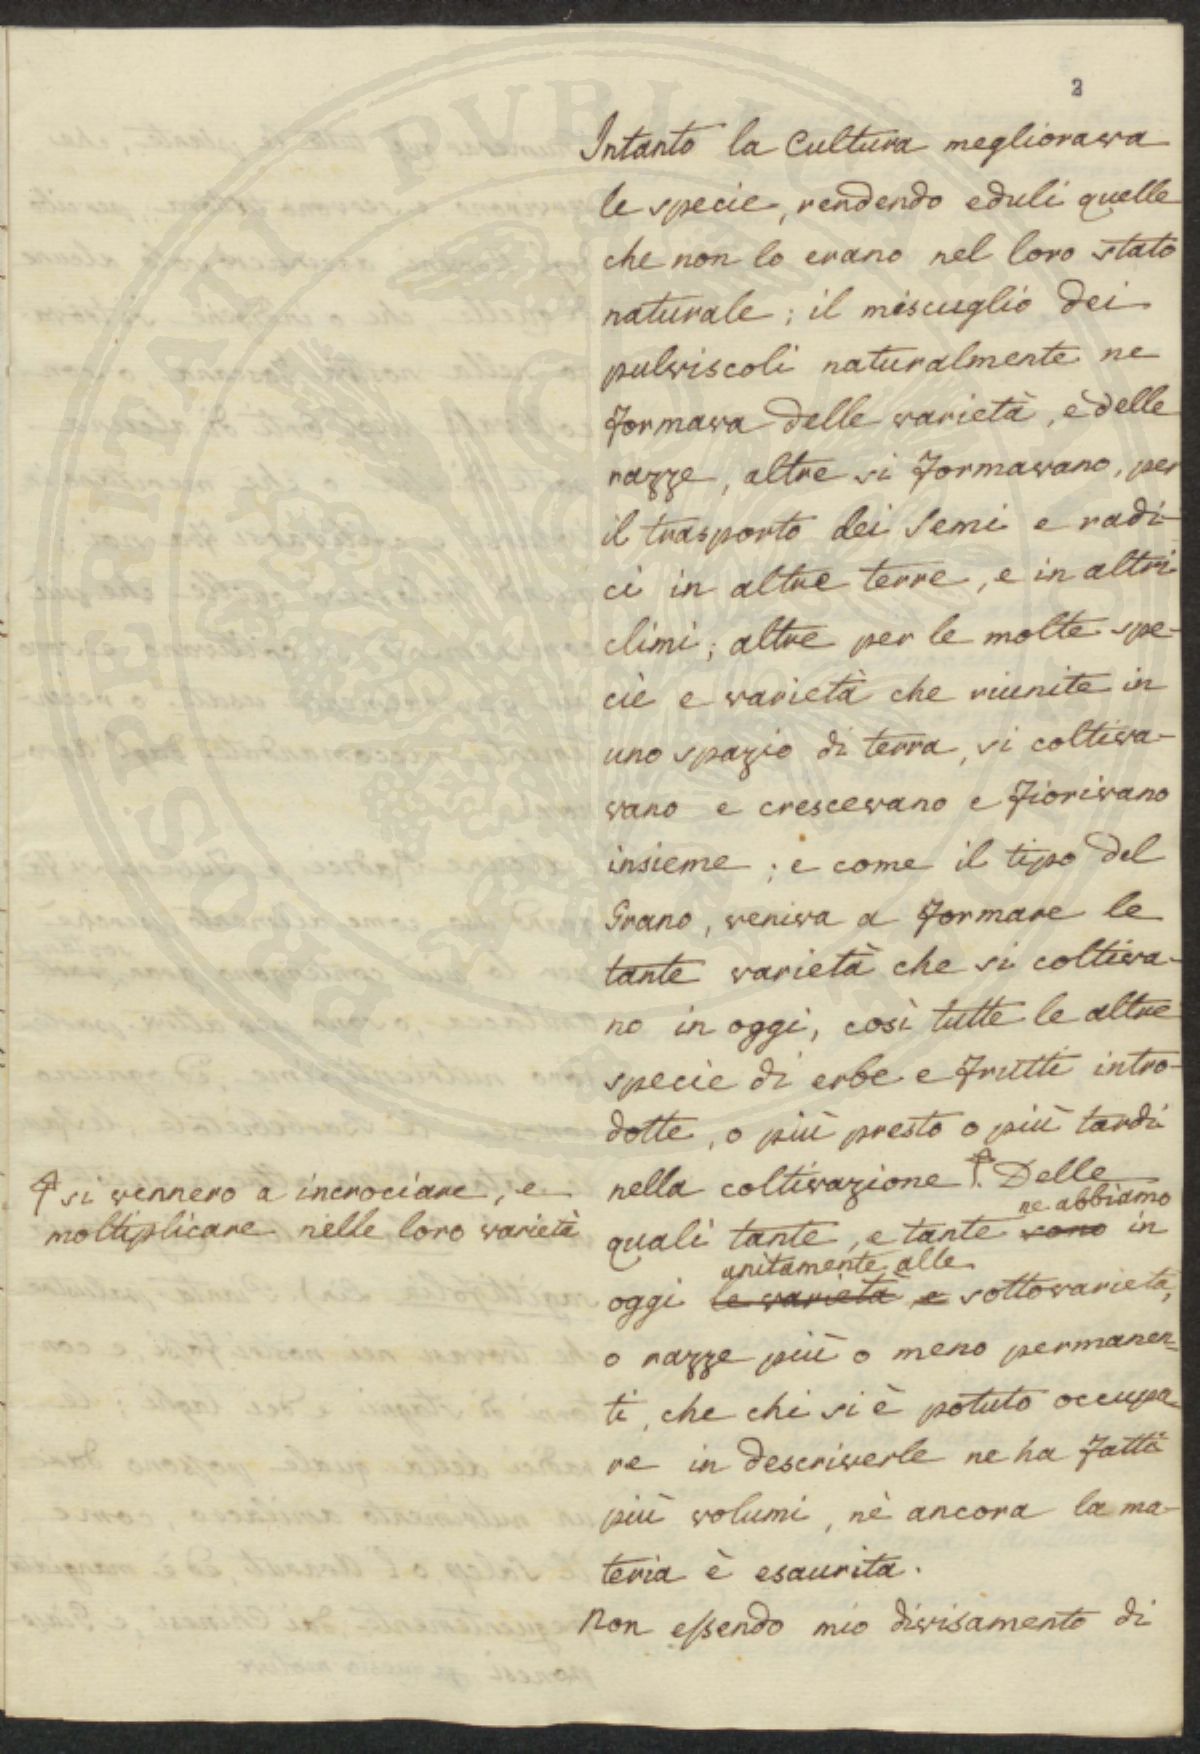 2
Intanto la Cultura megliorava
le specie, rendendo eduli quelle
che non lo erano nel loro stato
naturale; il miscuglio dei
pulviscoli naturalmente ne
formava delle varietà, e delle
razze, altre si formavano, per
il trasporto dei semi e radi-
ci in altre terre, e in altri
climi; altre per le molte spe-
cie e varietà che riunite in
uno spazio di terra, si coltiva-
vano e crescevano e fiorivano
insieme; e come il tipo del
Grano, veniva a formare le
tante varietà che si coltiva-
no in oggi, così tutte le altre
specie di erbe e frutti intro-
dotte, o più presto o più tardi
nella coltivazione. Delle
si vennero a incrociare, e
moltiplicare nelle loro varietà
ne abbiamo
quali tante, e tante sono in
unitamente alle
oggi le varietà e sottovarietà,
o razze più o meno permanen=
ti, che chi si è potuto occupa-
re in descriverle ne ha fatti
più volumi, nè ancora la ma-
teria è esaurita.
Non essendo mio divisamento di
PROSPERITATI PVBLICAE